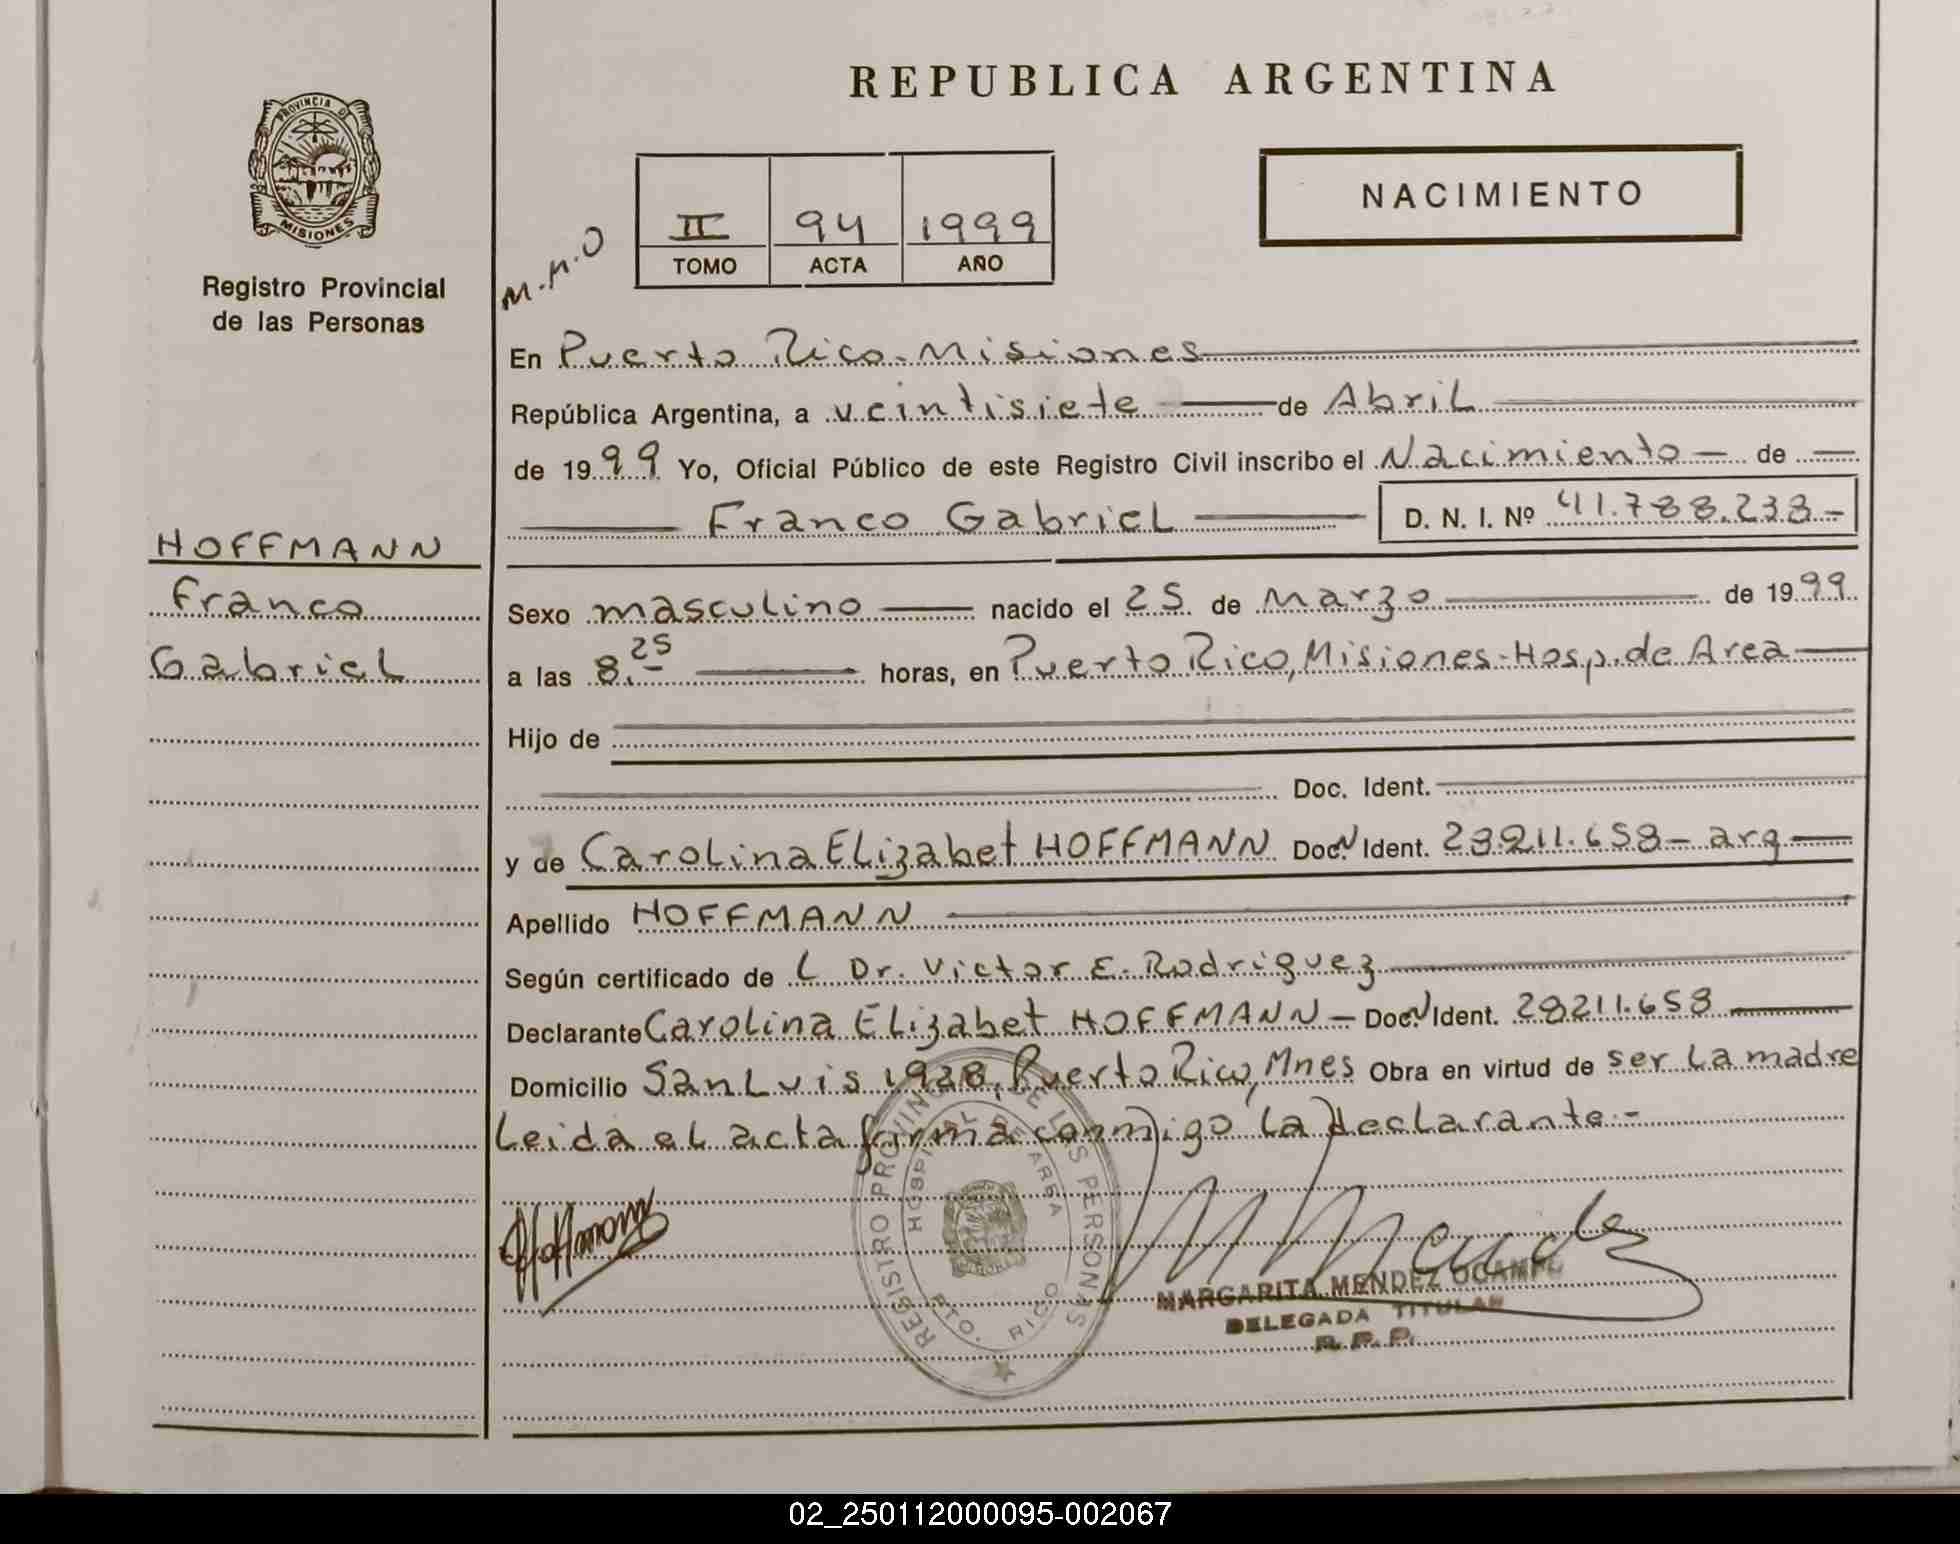 REPUBLICA ARGENTINA
PROVINCIA DE
MISIONES
Registro Provincial
de las Personas
NACIMIENTO
M.M.O
II 94 1999
TOMO ACTA AÑO
En Puerto Rico-Misiones
República Argentina, a veintisiete de Abril
de 1999 Yo, Oficial Público de este Registro Civil inscribo el Nacimiento — de —
Franco Gabriel D. N. I. Nº 41.788.238-
HOFFMANN
Franco
Gabriel
Sexo masculino nacido el 25 de Marzo de 1999
a las 8.25 horas, en Puerto Rico, Misiones-Hosp. de Area
Hijo de
Doc. Ident.
y de Carolina Elizabet HOFFMANN Doc. N Ident. 28211.658- arg
Apellido HOFFMANN
Según certificado de L Dr. Victor E. Rodriguez
Declarante Carolina Elizabet HOFFMANN — Doc. N Ident. 28211.658
Domicilio San Luis 1928, Puerto Rico, Mnes Obra en virtud de ser la madre
Leida el acta firma conmigo la declarante.-
Hoffmann
REGISTRO PROVINCIAL DE LAS PERSONAS
HOSPITAL DE AREA
PTO. RICO
MARGARITA MENDEZ OCAMPO
DELEGADA TITULAR
R. P. P.
02_250112000095-002067